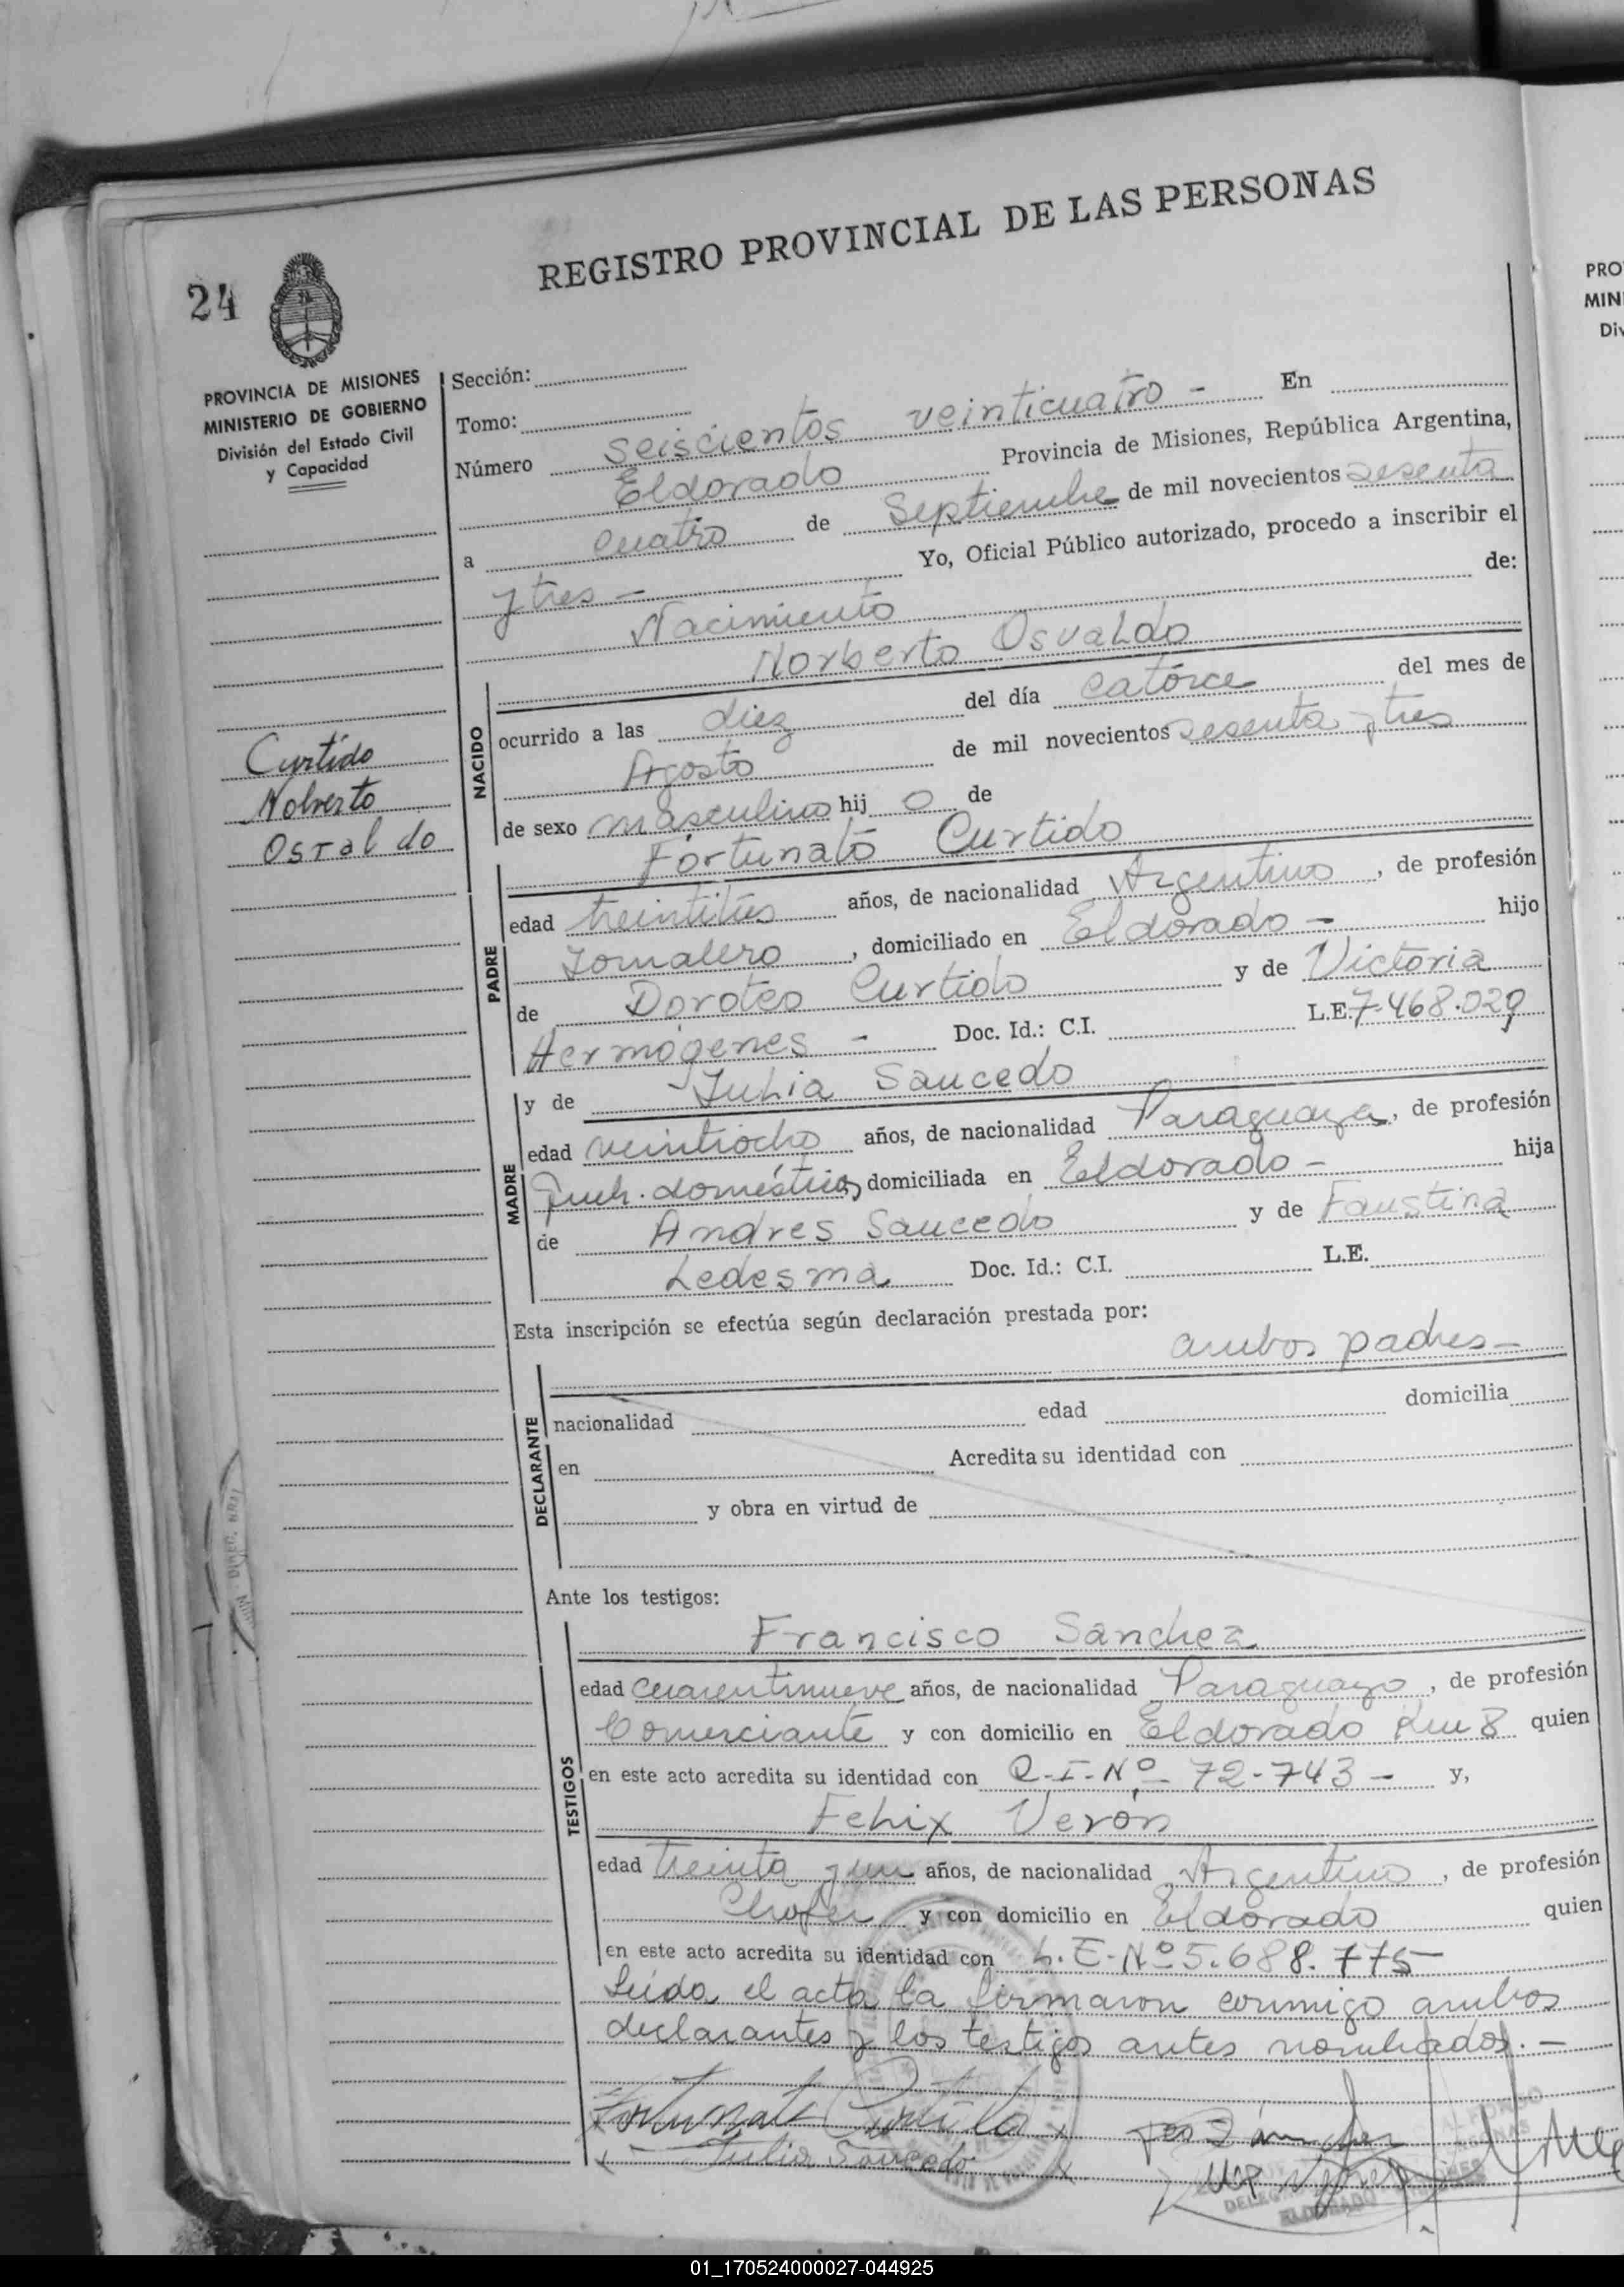 REGISTRO PROVINCIAL DE LAS PERSONAS
24
PROVINCIA DE MISIONES
MINISTERIO DE GOBIERNO
División del Estado Civil
y Capacidad
Curtido
Nolverto
Osvaldo
Sección:
Tomo:
Número seiscientos veinticuatro - En
Eldorado Provincia de Misiones, República Argentina,
a cuatro de Septiembre de mil novecientos sesenta
y tres - Yo, Oficial Público autorizado, procedo a inscribir el
Nacimiento de:
NACIDO
Norberto Osvaldo
ocurrido a las diez del día catorce del mes de
Agosto de mil novecientos sesenta y tres
de sexo masculino hij o de
PADRE
Fortunato Curtido
edad treintitrés años, de nacionalidad Argentino, de profesión
Jornalero, domiciliado en Eldorado - hijo
de Doroteo Curtido y de Victoria
Hermógenes - Doc. Id.: C.I. L.E. 7.468.029
MADRE
y de Julia Saucedo
edad veintiocho años, de nacionalidad Paraguaya, de profesión
Queh. domésticos, domiciliada en Eldorado - hija
de Andres Saucedo y de Faustina
Ledesma Doc. Id.: C.I. L.E.
Esta inscripción se efectúa según declaración prestada por:
ambos padres -
DECLARANTE
nacionalidad edad domicilia
en Acredita su identidad con
y obra en virtud de
Ante los testigos:
TESTIGOS
Francisco Sanchez
edad cuarentinueve años, de nacionalidad Paraguayo, de profesión
Comerciante y con domicilio en Eldorado Km 8 quien
en este acto acredita su identidad con C-I-Nº- 72-743 - y,
Felix Veron
edad treinta y un años, de nacionalidad Argentino, de profesión
Chofer y con domicilio en Eldorado quien
en este acto acredita su identidad con L.E-Nº 5.688.775-
Leída el acta la firmaron conmigo ambos
declarantes y los testigos antes nombrados. -
Fortunato Curtido
Julia Saucedo
ELDORADO
PRO
MINI
Div
01_170524000027-044925